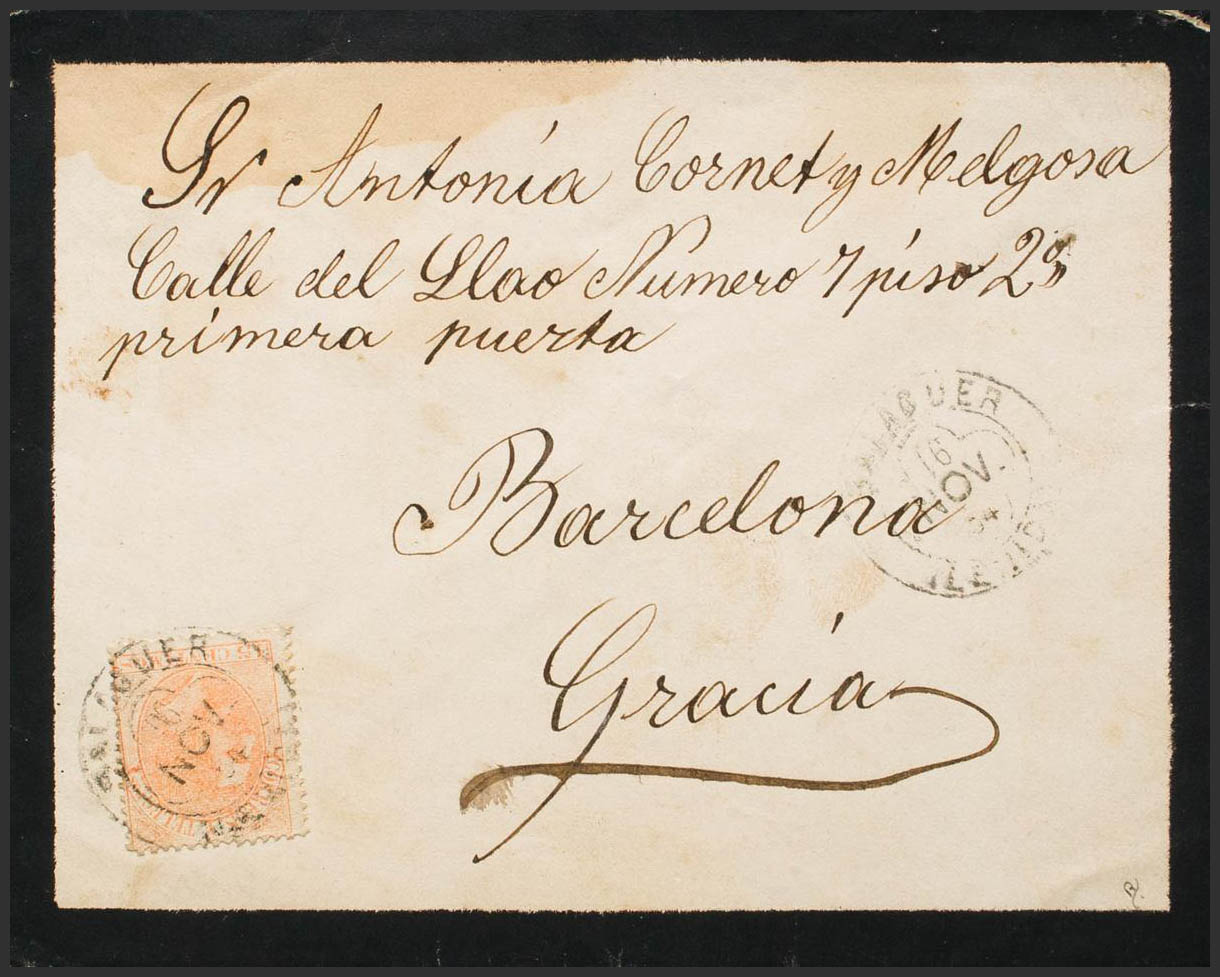 Sr Antonia Cornet y Melgosa
Calle del Llao Numero 7 piso 2º
primera puerta
Barcelona
Gracia
BALAGUER
16
NOV.
84
LERIDA
BALAGUER
16
NOV
84